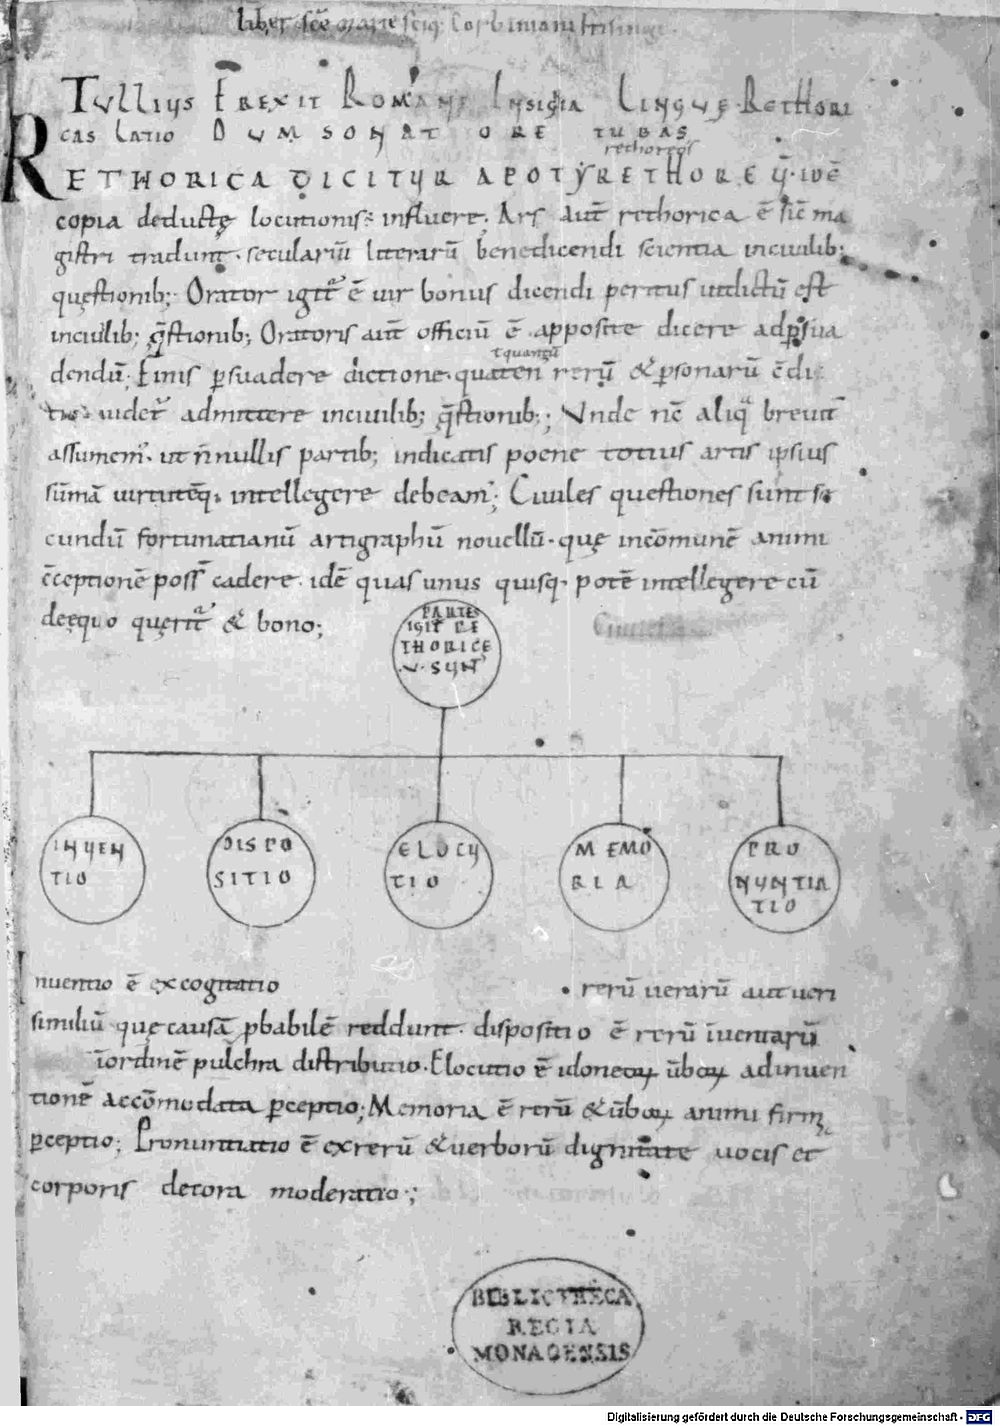 liber sce marie sciq; Corbiniani frisinge
TVLLIUS EREXIT ROMANE INSIGNIA LINGUE RETHORI
CAS LATIO DUM SONAT ORE TUBAS
rethoreos
RETHORICA DICITUR APOTYRETHORE q̄. IDĒ
copia deductę locutionis influere. Ars aut̄ rethorica ē sic̄ ma
gistri tradunt. seculariū literarū benedicendi scientia inciuilib;
quęstionib; Orator igit̄ ē uir bonus dicendi peritus utdictū est
inciuilib; q̄stionib; Oratoris aut̄ officiū ē apposite dicere adpsua
dendū; Finis psuadere dictione. quaten rerū & psonarū c̄di
tio uidet̄ admittere inciuilib; q̄stionib;; Vnde nc̄ aliq̄ breuit̄
assumem̄. ut n̄nullis partib; indicatis poene totius artis ipsius
sūmā uirtutēq; intellegere debeam̄; Ciuiles questiones sunt se
cundū fortunatianū artigraphū nouellū. que incōmunē animi
c̄ceptionē poss̄ cadere. idē quas unus quisq. potē intellegere cū
deęquo querit̄ & bono;
PARTES
IGIT̄ RE
THORICE
.V. SUNT
INUEN
TIO
DISPO
SITIO
ELOCU
TIO
MEMO
RIA
PRO
NUNTIA
TIO
Inuentio ē excogitatio rerū uerarū aut ueri
similiū que causā pbabilē reddunt. dispositio ē rerū īuentarū
īordinē pulchra distributio. Elocutio ē idoneoꝝ ūboꝝ adinuen
tionē accōmodata pceptio; Memoria ē rerū & ūboꝝ animi firma
pceptio; Pronuntiatio ē exrerū & uerborū dignitate uocis et
corporis decora moderatio;
BIBLIOTHECA
REGIA
MONACENSIS
Digitalisierung gefördert durch die Deutsche Forschungsgemeinschaft - DFG